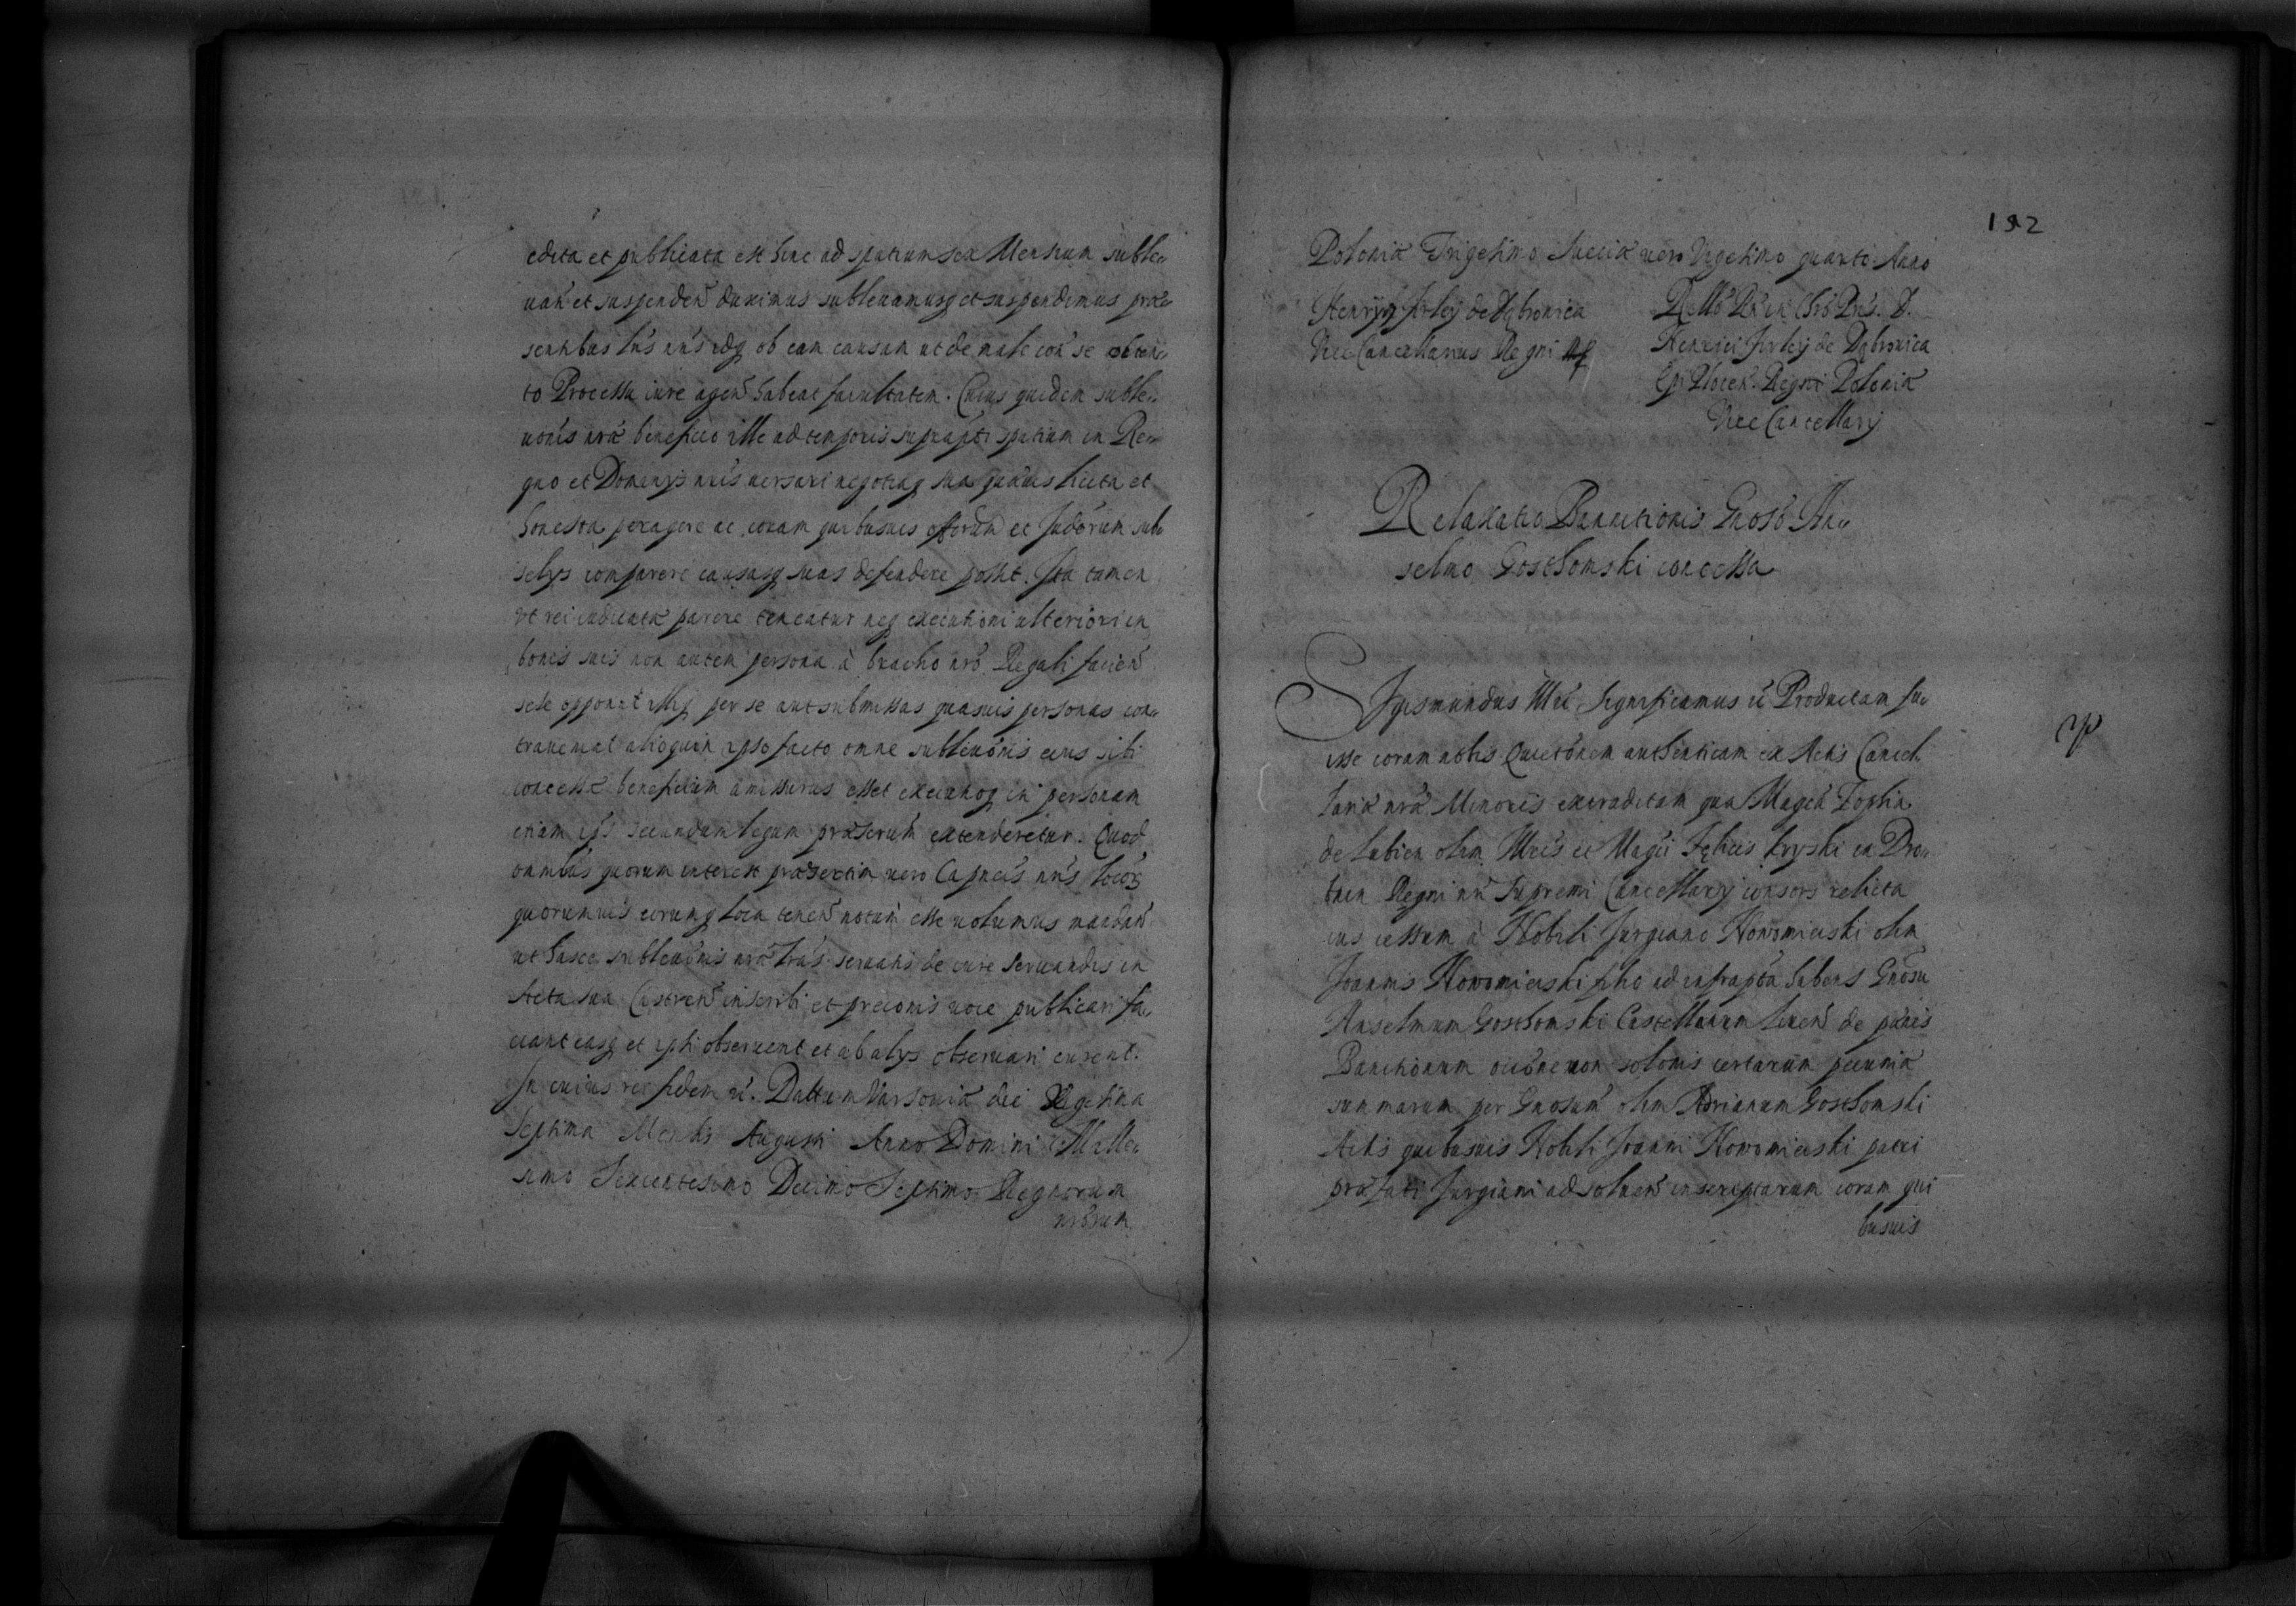 edita et publicata est hinc ad spatium sex Mensium suble
uan et suspenden duximus subleuamusq et suspendimus præ
sentibus lris nris idq ob eam causam ut de male con se obten
to Processu iure agen habeat facultatem. Cuius quidem suble
uonis nræ beneficio ille ad temporis suprapti spatium in Re
gno et Dominys nris uersari negotiaq sua quæuis licita et
honesta peragere ac coram quibusuis offorum et Judorum sub
selys comparere causasq suas defendere possit. Ita tamen
vt rei iudicatæ parere teneatur neq executioni ulteriori in
bonis suis non autem persona à brachio nro Regali facien
sese opponat illiq per se aut submissas quasuis personas con
traueniat alioquin ipso facto omne subleuonis eius sibi
concessæ beneficium amissurus esset executioq in personam
etiam ips secundum legum præscrium extenderetur. Quod
omnibus quorum interest præsertim uero Capneis nris locor
quorumuis eorumq loca tenen notum esse uolumus mandan
ut hasce subleuonis nræ lras seruatis de iure seruandis in
Acta sua Castren inscribi et preconis uoce publicari fa
ciant easq et ipsi obseruent et ab alys obseruari curent.
In cuius rei fidem &. Dattum Varsouiæ die Vigesima
Septima Mensis Augusti Anno Domini Mille
simo Sexcentesimo Decimo Septimo Regnorum
nrorum
192
Poloniæ Trigesimo Sueciæ uero Vigesimo quarto Anno
Henryk Firley de Dąbrowica
Vice Cancellarius Regni
Rello Rdi in Chro Pris. D.
Henrici Firley de Dąbrowica
Epi Plocen. Regni Poloniæ
Vice Cancellarij
Relaxatio Bannitionis Gnoso An
selmo Gosthomski concessa
Sigismundus III &. Significamus &. Productam fu
isse coram nobis Quietonem authenticam ex Actis Cancel
lariæ nræ Minoris extraditam qua Magca Zophia
de Lubien olim Illris et Magci Felicis Kryski in Dro
bnin Regni nri Supremi Cancellarij consors relicta
ius cessum à Nobili Jurgiano Nowomieiski olim
Joannis Nowomieiski filio ad infrapta habens Gnosu
Anselmum Gosthomski Castellanum liuen de pnis
Banitionum occone non solonis certarum pecuniæ
summarum per Gnosum olim Adrianum Gosthomski
Actis quibusuis Nobili Joanni Nowomieiski patri
præfati Jurgiani ad soluen inscriptarum coram qui
busuis